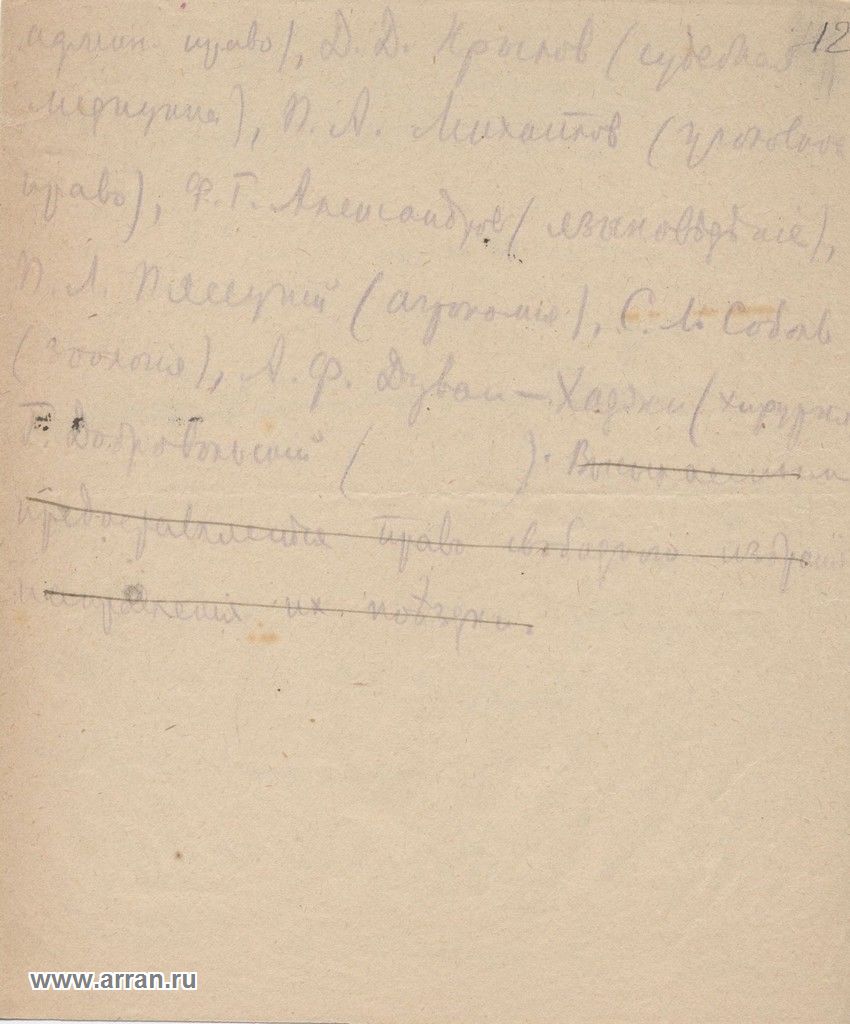 12
админ. право), Д. Д. Крылов (судебная
медицина), П. А. Михайлов (уголовное
право), Ф. Г. Александров (языковѣдѣніе),
П. Л. Пясецкій (агрономія), С. Л. Соболь
(зоологія), А. Ф. Дуван-Хаджи (хирургія
Г. Добровольский ( ).
предоставляется право свободного избранія
направленія их поѣздки.
www.arran.ru